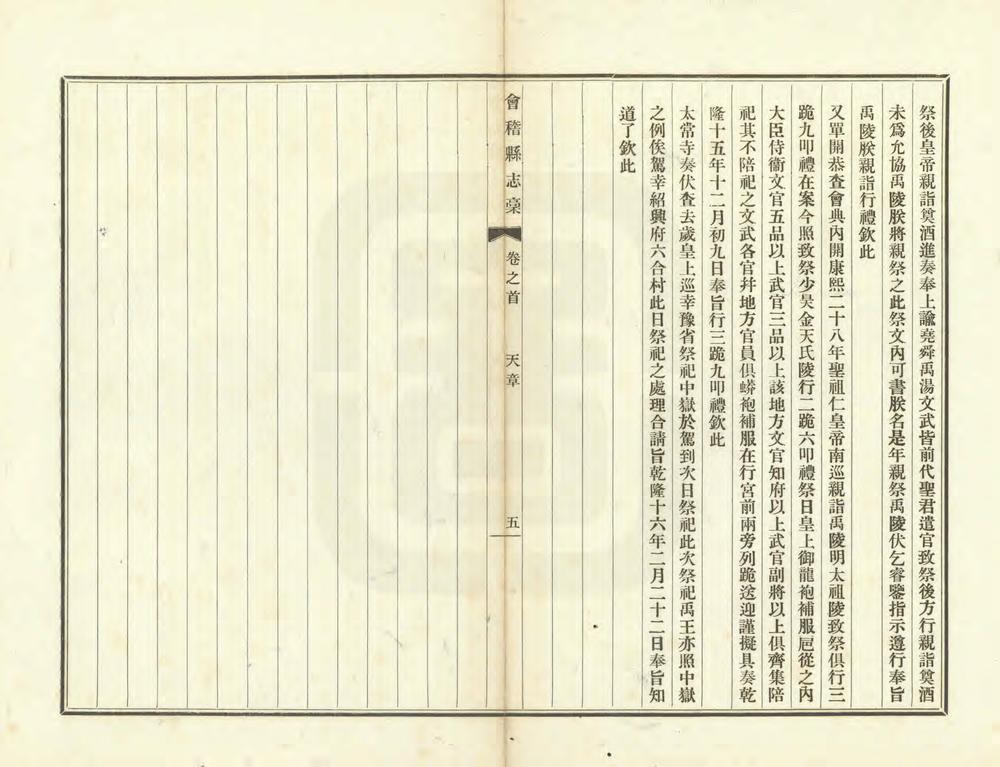 祭後皇帝親詣奠酒進奏奉上諭堯舜禹湯文武皆前代聖君遣官致祭後方行親詣奠酒
未爲允協禹陵朕將親祭之此祭文內可書朕名是年親祭禹陵伏乞睿鑒指示遵行奉旨
禹陵朕親詣行禮欽此
又單開恭查會典內開康熙二十八年聖祖仁皇帝南巡親詣禹陵明太祖陵致祭俱行三
跪九叩禮在案今照致祭少昊金天氏陵行二跪六叩禮祭日皇上御龍袍補服扈從之內
大臣侍衞文官五品以上武官三品以上該地方文官知府以上武官副將以上俱齊集陪
祀其不陪祀之文武各官幷地方官員俱蟒袍補服在行宮前兩旁列跪送迎謹擬具奏乾
隆十五年十二月初九日奉旨行三跪九叩禮欽此
太常寺奏伏查去歲皇上巡幸豫省祭祀中嶽於駕到次日祭祀此次祭祀禹王亦照中嶽
之例俟駕幸紹興府六合村此日祭祀之處理合請旨乾隆十六年二月二十二日奉旨知
道了欽此
會稽縣志稾
卷之首
天章
五